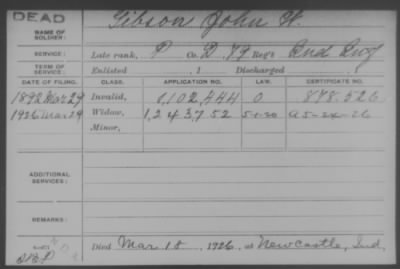 DEAD
NAME OF SOLDIER: Gibson John W.
SERVICE: Late rank, P Co. D 79 Reg't Ind Inf
TERM OF SERVICE: Enlisted , 1 Discharged , 1
DATE OF FILING. CLASS. APPLICATION NO. LAW. CERTIFICATE NO.
1892 Mar 29 Invalid, 1,102,444 0 878,526
1926 Mar 29 Widow, 1,243,752 5-1-20 A 5-24-26
Minor,
ADDITIONAL SERVICES:
REMARKS:
Died Mar 18, 1926, at Newcastle, Ind,